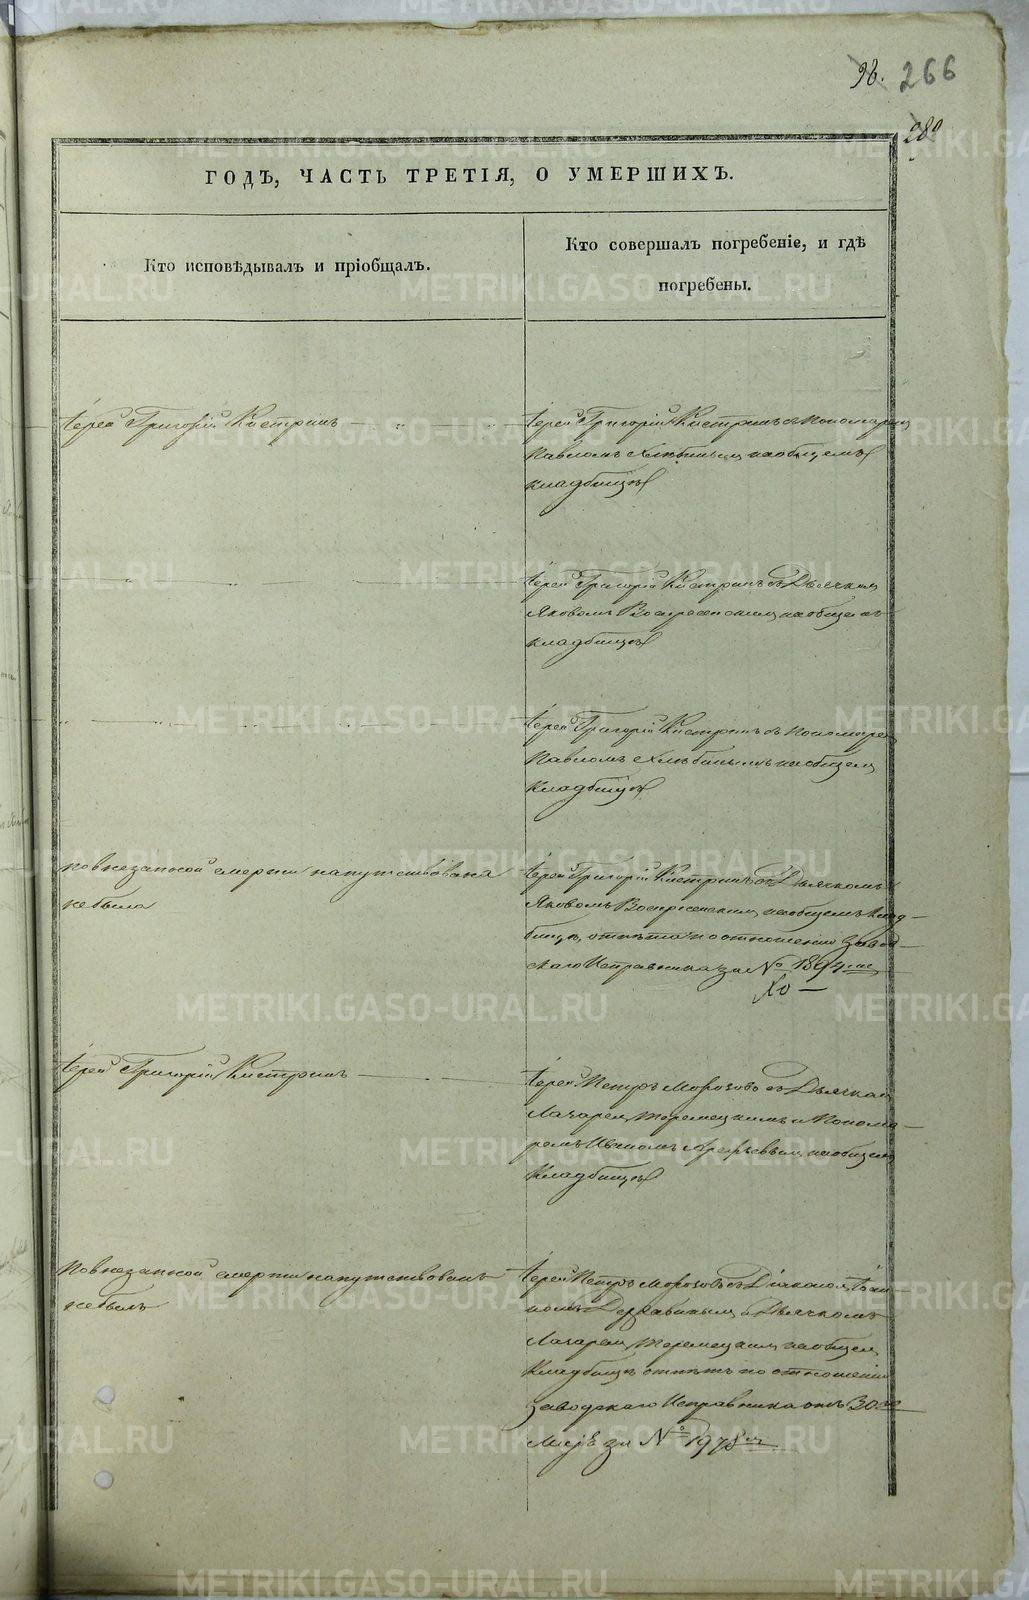 98. 266
280
ГОДЪ, ЧАСТЬ ТРЕТІЯ, О УМЕРШИХЪ.
Кто исповѣдывалъ и пріобщалъ.
Кто совершалъ погребеніе, и гдѣ
погребены.
Іерей Григорій Кистринъ
Іерей Григорій Кистринъ с Пономаремъ
Павломъ Хлѣбинымъ на общемъ
кладбищѣ
Іерей Григорій Кистринъ съ Дьячкомъ
Яковомъ Воскресенскимъ на общемъ
кладбищѣ
Іерей Григорій Кистринъ съ Пономаремъ
Павломъ Хлѣбинымъ на общемъ
кладбищѣ
По внезапной смерти напутствована
не была
Іерей Григорій Кистринъ съ Дьячкомъ
Яковомъ Воскресенскимъ на общемъ Клад-
бищѣ, отпѣта по отношенію Завод-
скаго Исправника за № 1894.
Іерей Григорій Кистринъ
Іерей Петръ Морозовъ съ Дьячкомъ
Лазаремъ и Понома-
ремъ на общемъ
Кладбищѣ
По внезапной смерти напутствованъ
не былъ
Іерей Петръ Морозовъ съ Діакономъ Іоан-
номъ Державинымъ и Дьячкомъ
Лазаремъ на общемъ
Кладбищѣ отпѣтъ по отношенію
Заводскаго Исправника отъ 30го
Маія за № 1978
METRIKI.GASO-URAL.RU